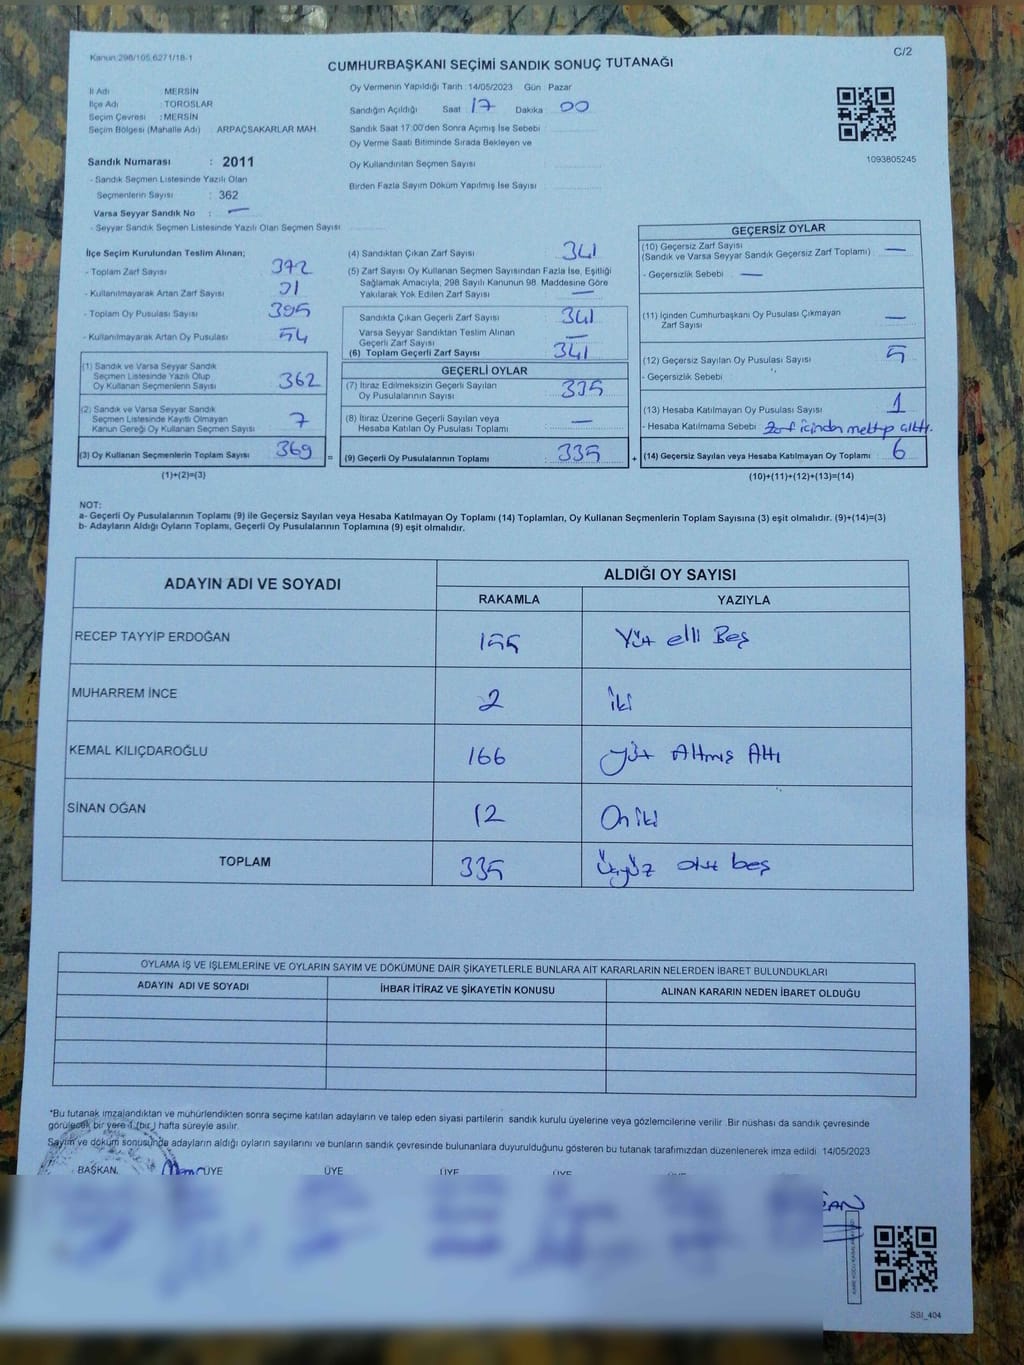 Kanun:298/105,6271/18-1
C/2
CUMHURBAŞKANI SEÇİMİ SANDIK SONUÇ TUTANAĞI
İl Adı : MERSİN
İlçe Adı : TOROSLAR
Seçim Çevresi : MERSİN
Seçim Bölgesi (Mahalle Adı) : ARPAÇSAKARLAR MAH.
Sandık Numarası : 2011
- Sandık Seçmen Listesinde Yazılı Olan
Seçmenlerin Sayısı : 362
Varsa Seyyar Sandık No : —
- Seyyar Sandık Seçmen Listesinde Yazılı Olan Seçmen Sayısı
Oy Vermenin Yapıldığı Tarih :14/05/2023 Gün : Pazar
Sandığın Açıldığı Saat 17 Dakika 00
Sandık Saat 17:00'den Sonra Açılmış İse Sebebi
Oy Verme Saati Bitiminde Sırada Bekleyen ve
Oy Kullandırılan Seçmen Sayısı
Birden Fazla Sayım Döküm Yapılmış İse Sayısı
1093805245
İlçe Seçim Kurulundan Teslim Alınan;
- Toplam Zarf Sayısı 372
- Kullanılmayarak Artan Zarf Sayısı 31
- Toplam Oy Pusulası Sayısı 395
- Kullanılmayarak Artan Oy Pusulası 54
(1) Sandık ve Varsa Seyyar Sandık
Seçmen Listesinde Yazılı Olup
Oy Kullanan Seçmenlerin Sayısı 362
(2) Sandık ve Varsa Seyyar Sandık
Seçmen Listesinde Kayıtlı Olmayan
Kanun Gereği Oy Kullanan Seçmen Sayısı 7
(3) Oy Kullanan Seçmenlerin Toplam Sayısı 369 =
(1)+(2)=(3)
(4) Sandıktan Çıkan Zarf Sayısı 341
(5) Zarf Sayısı Oy Kullanan Seçmen Sayısından Fazla İse, Eşitliği
Sağlamak Amacıyla, 298 Sayılı Kanunun 98. Maddesine Göre
Yakılarak Yok Edilen Zarf Sayısı —
Sandıkta Çıkan Geçerli Zarf Sayısı 341
Varsa Seyyar Sandıktan Teslim Alınan
Geçerli Zarf Sayısı —
(6) Toplam Geçerli Zarf Sayısı 341
GEÇERLİ OYLAR
(7) İtiraz Edilmeksizin Geçerli Sayılan
Oy Pusulasılarının Sayısı 335
(8) İtiraz Üzerine Geçerli Sayılan veya
Hesaba Katılan Oy Pusulası Toplamı —
(9) Geçerli Oy Pusulalarının Toplamı 335 +
GEÇERSİZ OYLAR
(10) Geçersiz Zarf Sayısı —
(Sandık ve Varsa Seyyar Sandık Geçersiz Zarf Toplamı)
- Geçersizlik Sebebi : —
(11) İçinden Cumhurbaşkanı Oy Pusulası Çıkmayan
Zarf Sayısı —
(12) Geçersiz Sayılan Oy Pusulası Sayısı 5
- Geçersizlik Sebebi :
(13) Hesaba Katılmayan Oy Pusulası Sayısı 1
- Hesaba Katılmama Sebebi : Zarf içinden mektup çıktı.
(14) Geçersiz Sayılan veya Hesaba Katılmayan Oy Toplamı 6
(10)+(11)+(12)+(13)=(14)
NOT:
a- Geçerli Oy Pusulalarının Toplamı (9) ile Geçersiz Sayılan veya Hesaba Katılmayan Oy Toplamı (14) Toplamları, Oy Kullanan Seçmenlerin Toplam Sayısına (3) eşit olmalıdır. (9)+(14)=(3)
b- Adayların Aldığı Oyların Toplamı, Geçerli Oy Pusulalarının Toplamına (9) eşit olmalıdır.
ADAYIN ADI VE SOYADI ALDIĞI OY SAYISI
RAKAMLA YAZIYLA
RECEP TAYYİP ERDOĞAN 155 Yüz elli Beş
MUHARREM İNCE 2 iki
KEMAL KILIÇDAROĞLU 166 yüz Altmış Altı
SİNAN OĞAN 12 On iki
TOPLAM 335 üçyüz otuz beş
OYLAMA İŞ VE İŞLEMLERİNE VE OYLARIN SAYIM VE DÖKÜMÜNE DAİR ŞİKAYETLERLE BUNLARA AİT KARARLARIN NELERDEN İBARET BULUNDUKLARI
ADAYIN ADI VE SOYADI İHBAR İTİRAZ VE ŞİKAYETİN KONUSU ALINAN KARARIN NEDEN İBARET OLDUĞU
*Bu tutanak imzalandıktan ve mühürlendikten sonra seçime katılan adayların ve talep eden siyasi partilerin sandık kurulu üyelerine veya gözlemcilerine verilir. Bir nüshası da sandık çevresinde
görülecek bir yere 1 (bir) hafta süreyle asılır.
Sayım ve döküm sonusunda adayların aldığı oyların sayılarını ve bunların sandık çevresinde bulunanlara duyurulduğunu gösteren bu tutanak tarafımızdan düzenlenerek imza edildi. 14/05/2023
BAŞKAN ÜYE ÜYE ÜYE ÜYE
SSI_404